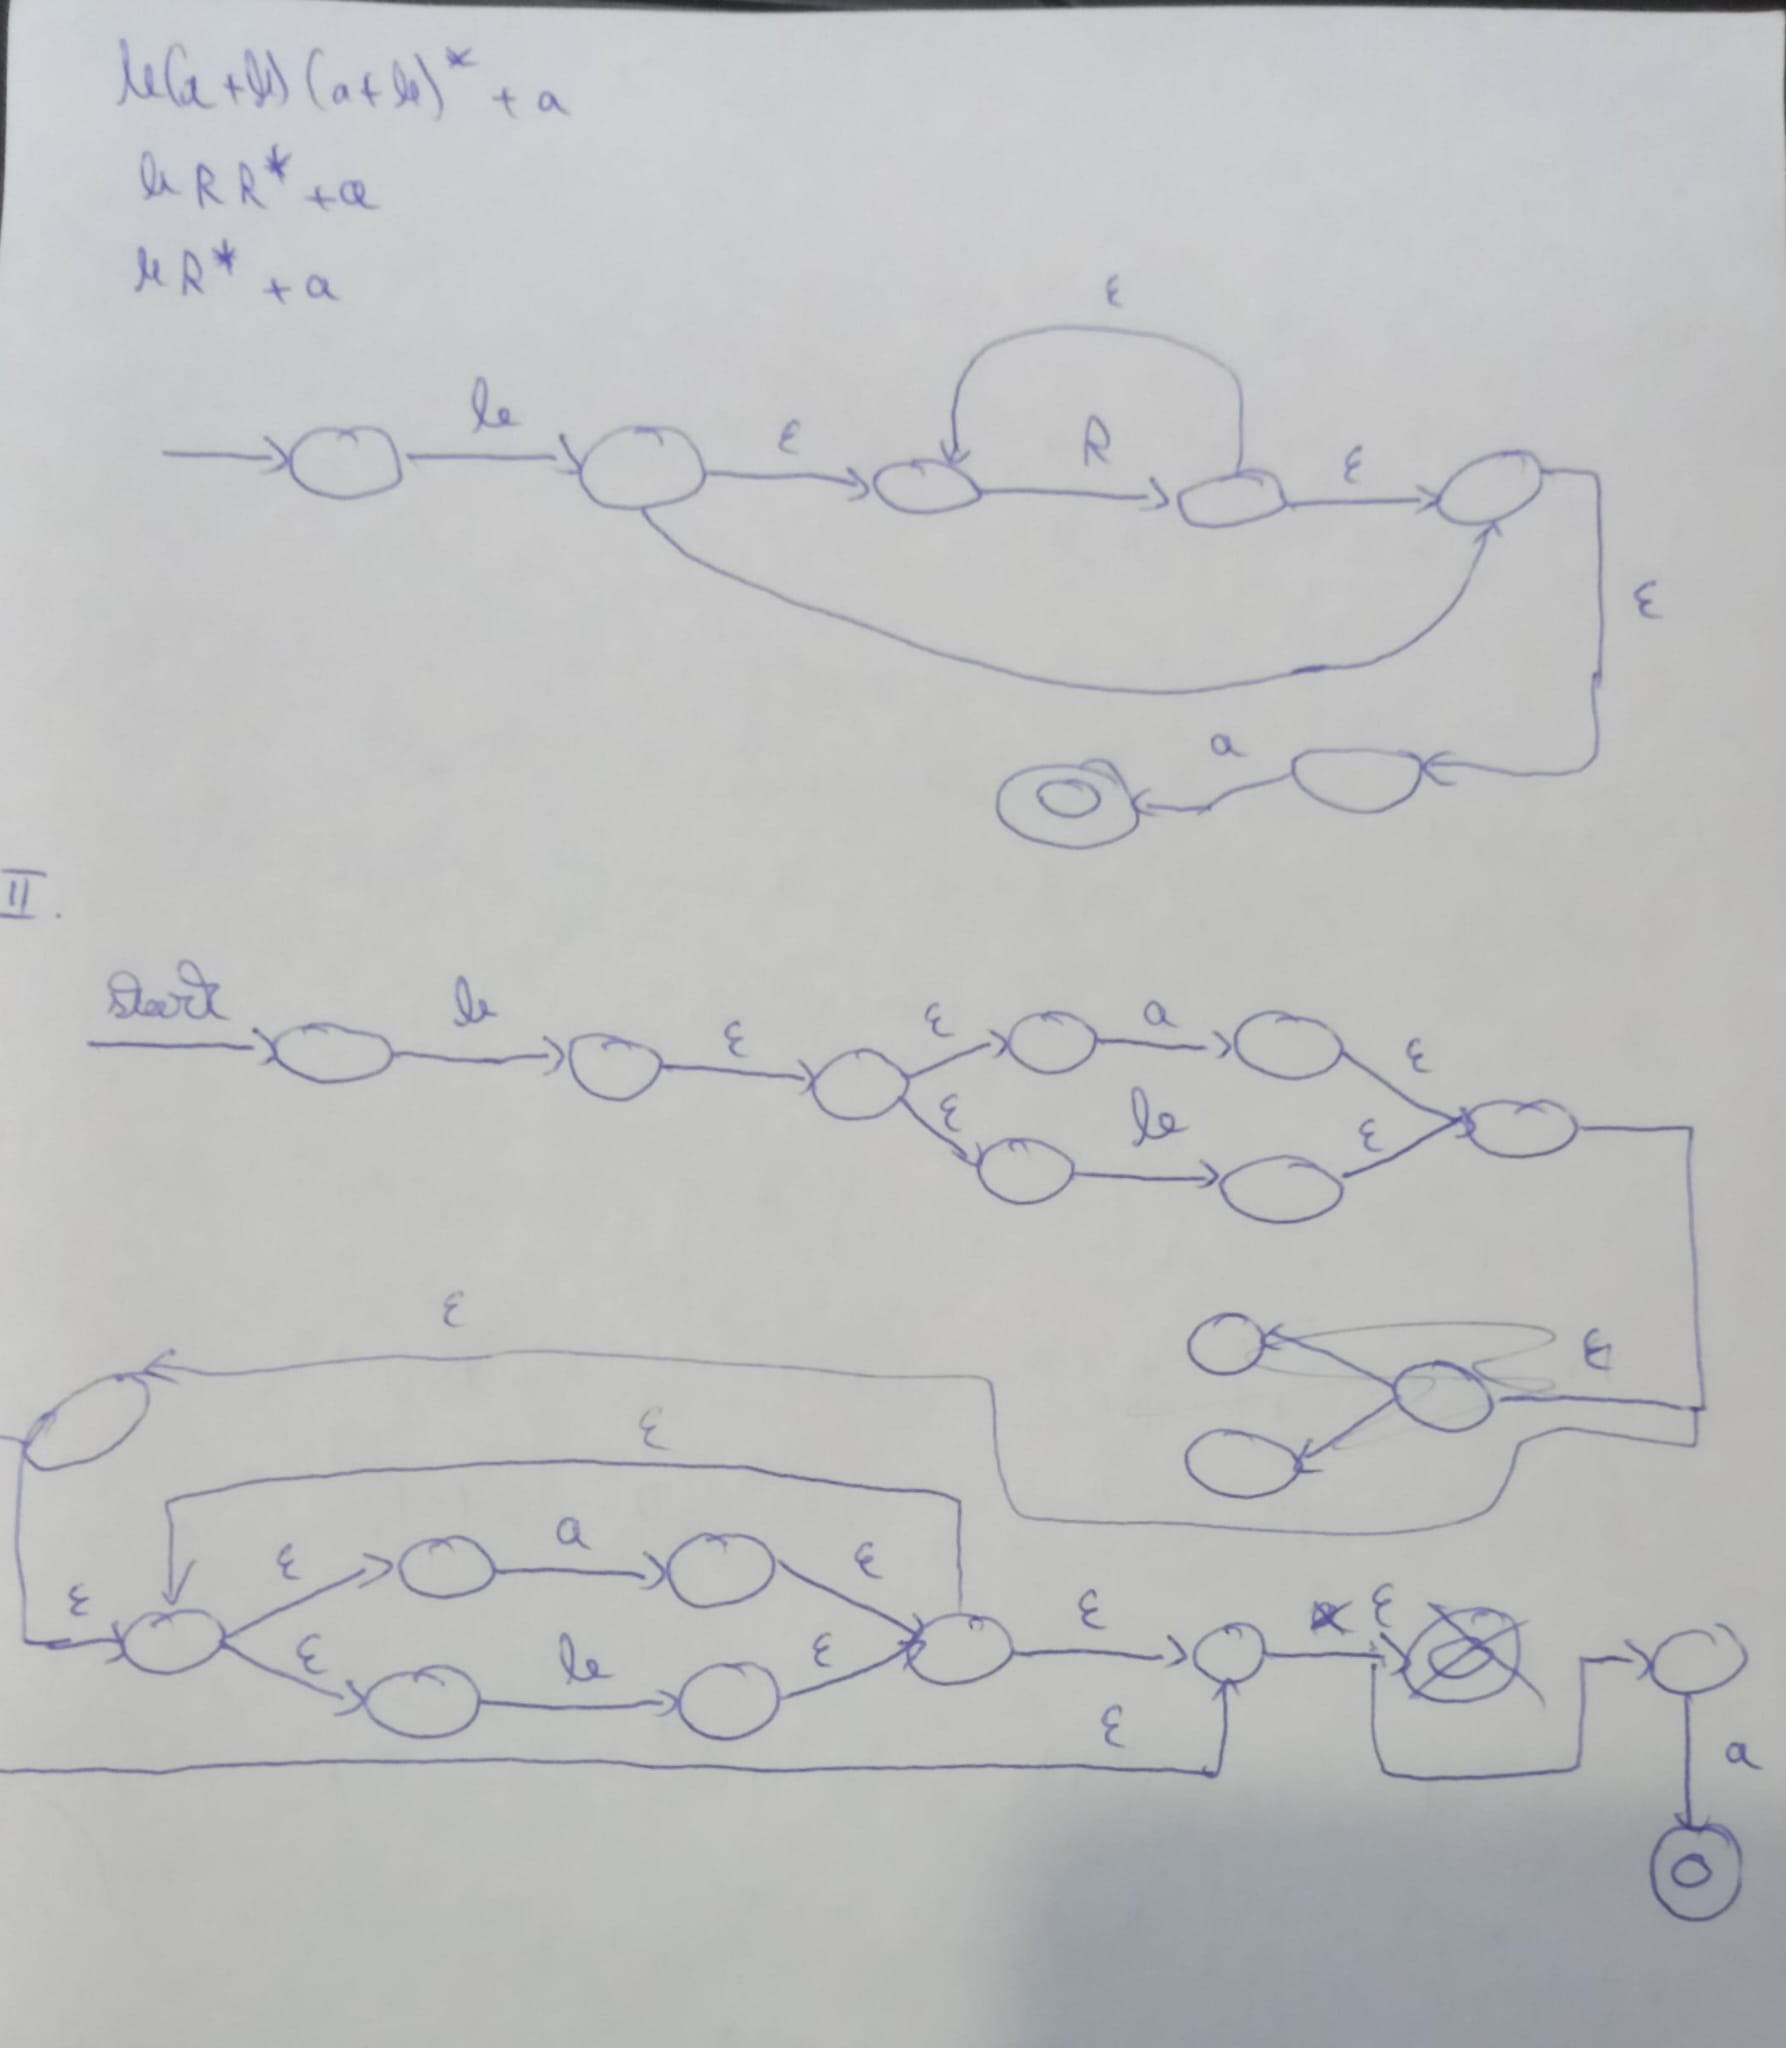 b(a+b)(a+b)* + a
b R R* + a
b R* + a
ε
b ε R ε
ε
a
II.
start b ε ε a ε
ε b ε
ε
ε
ε
ε a ε
ε ε ε
ε b ε
ε
a